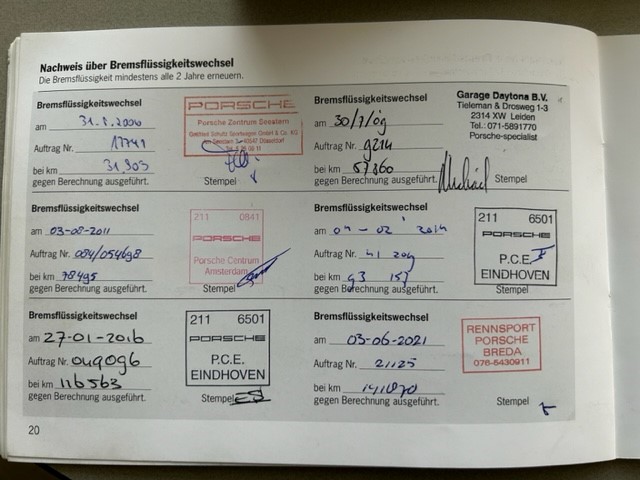 Nachweis über Bremsflüssigkeitswechsel
Die Bremsflüssigkeit mindestens alle 2 Jahre erneuern.
Bremsflüssigkeitswechsel
am
Auftrag Nr. 17741
bei km 31.303
gegen Berechnung ausgeführt.
PORSCHE
Porsche Zentrum Seestern
Stempel
Bremsflüssigkeitswechsel
am 30/7/09
Auftrag Nr. 9214
bei km 57360
gegen Berechnung ausgeführt.
Garage Daytona B.V.
Tieleman & Drosweg 1-3
2314 XW Leiden
Tel.: 071-5891770
Porsche-specialist
Stempel
Bremsflüssigkeitswechsel
am 03-08-2011
Auftrag Nr. 084/054698
bei km 78495
gegen Berechnung ausgeführt.
211 0841
PORSCHE
Porsche Centrum
Amsterdam
Stempel
Bremsflüssigkeitswechsel
am 04-02 2014
Auftrag Nr. 41 209
bei km 93 157
gegen Berechnung ausgeführt.
211 6501
PORSCHE
P.C.E.
EINDHOVEN
Stempel
Bremsflüssigkeitswechsel
am 27-01-2016
Auftrag Nr. 049096
bei km 116563
gegen Berechnung ausgeführt.
211 6501
PORSCHE
P.C.E.
EINDHOVEN
Stempel
Bremsflüssigkeitswechsel
am 03-06-2021
Auftrag Nr. 21125
bei km
gegen Berechnung ausgeführt.
RENNSPORT
PORSCHE
BREDA
076-5430911
Stempel
20